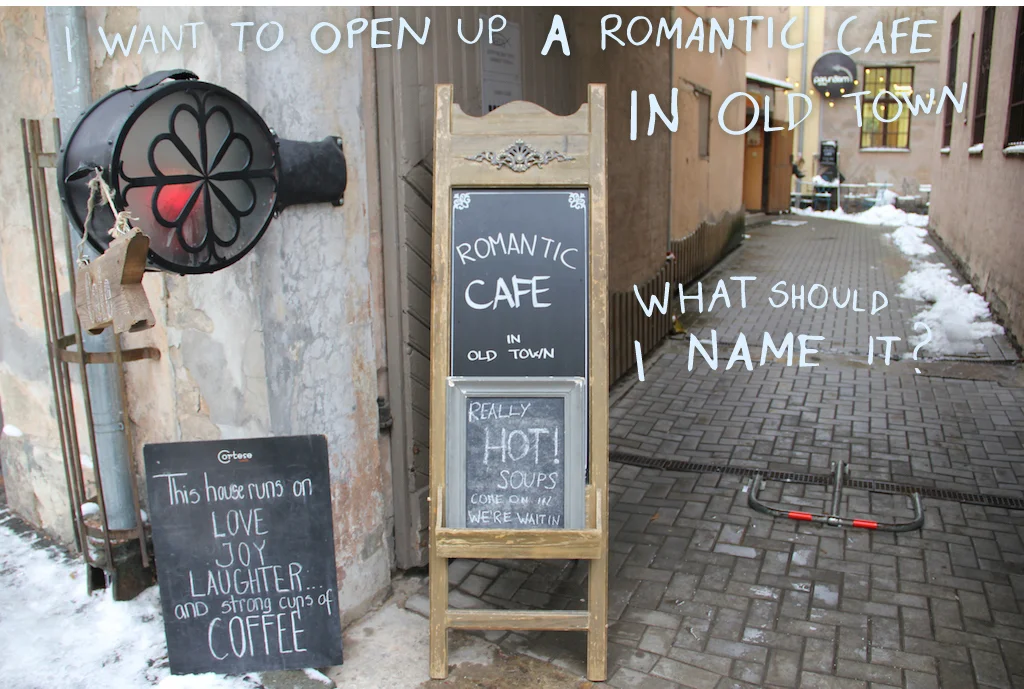 I WANT TO OPEN UP A ROMANTIC CAFE
IN OLD TOWN
ROMANTIC
CAFE
IN
OLD TOWN
WHAT SHOULD
I NAME IT?
REALLY
HOT!
SOUPS
COME ON IN
WE'RE WAITIN
Cortese
This house runs on
LOVE
JOY
LAUGHTER...
and strong cups of
COFFEE